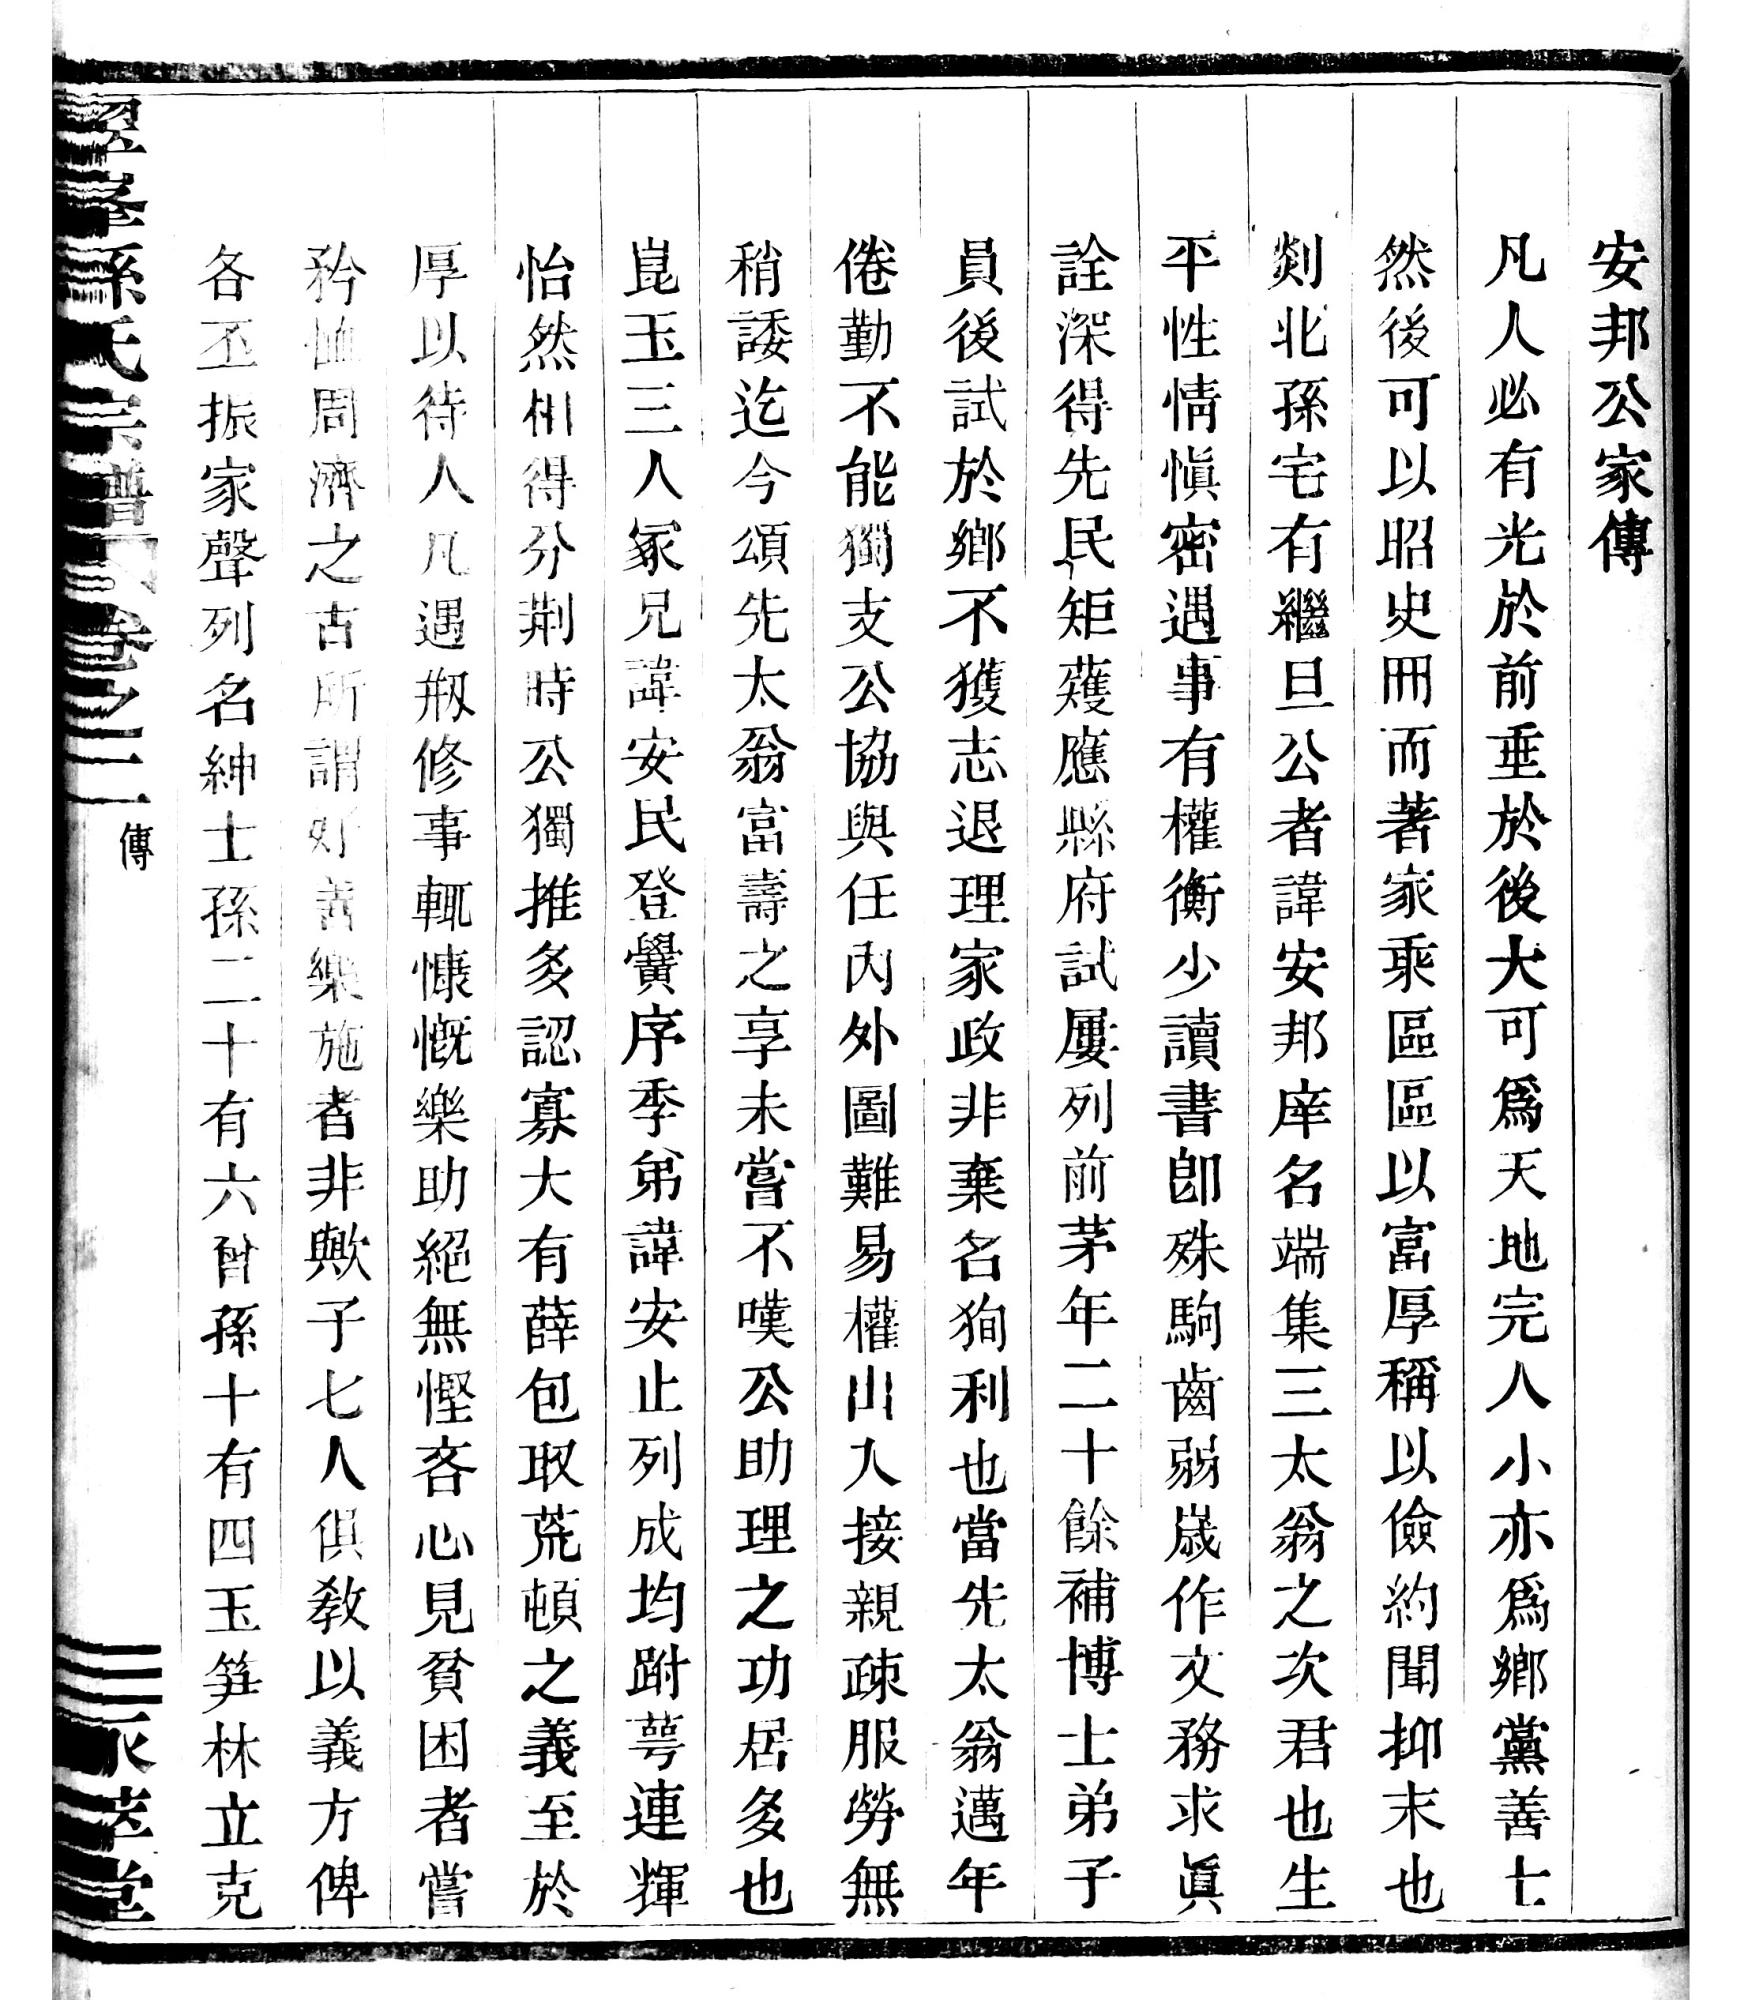 安邦公家傳
凡人必有光於前垂於後大可為天地完人小亦為鄉黨善士
然後可以昭史冊而著家乘區區以富厚稱以儉約聞抑末也
剡北孫宅有繼旦公者諱安邦庠名端集三太翁之次君也生
平性情愼密遇事有權衡少讀書卽殊駒齒弱歲作文務求眞
詮深得先民矩蒦應縣府試屢列前茅年二十餘補博士弟子
員後試於鄉不獲志退理家政非棄名狥利也當先太翁邁年
倦勤不能獨支公協與任內外圖難易權出入接親疎服勞無
稍諉迄今頌先太翁富壽之享未嘗不嘆公助理之功居多也
崑玉三人冢兄諱安民登黌序季弟諱安止列成均跗萼連輝
怡然相得分荆時公獨推多認寡大有薛包取荒頓之義至於
厚以待人凡遇剏修事輒慷慨樂助絕無慳吝心見貧困者嘗
矜恤周濟之古所謂好善樂施者非歟子七人俱教以義方俾
各丕振家聲列名紳士孫二十有六曾孫十有四玉筍林立克
孫氏宗譜 卷之二 傳 萃堂